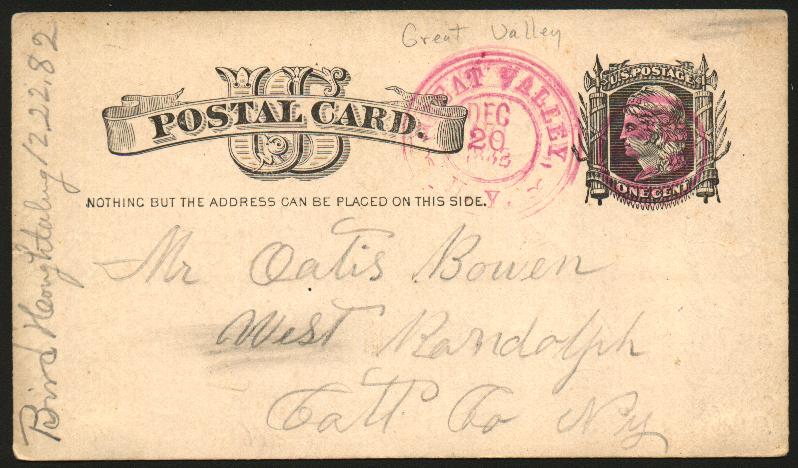 Great Valley
U.S. POSTAGE
US
POSTAL CARD.
GREAT VALLEY,
DEC
20
N.Y.
ONE CENT
NOTHING BUT THE ADDRESS CAN BE PLACED ON THIS SIDE.
Mr Oatis Bowen
West Randolph
Catt. Co Ny
Bird Houghtaling 12.22.82